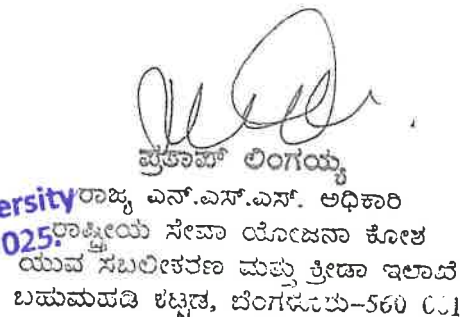 ಪ್ರತಾಪ್ ಲಿಂಗಯ್ಯ
ersity ರಾಜ್ಯ ಎನ್.ಎಸ್.ಎಸ್. ಅಧಿಕಾರಿ
025. ರಾಷ್ಟ್ರೀಯ ಸೇವಾ ಯೋಜನಾ ಕೋಶ
ಯುವ ಸಬಲೀಕರಣ ಮತ್ತು ಕ್ರೀಡಾ ಇಲಾಖೆ
ಬಹುಮಹಡಿ ಕಟ್ಟಡ, ಬೆಂಗಳೂರು-560 001